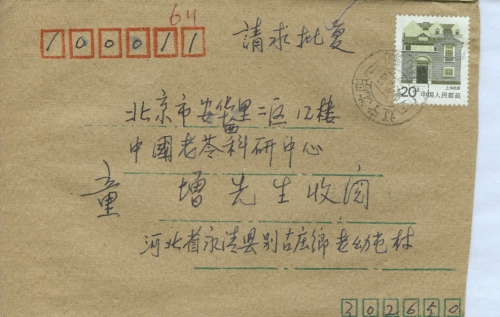 64
100011
請求批复
20
中国人民邮政
北京市安华里二区12楼
中國老苓科研中心
童 增先生收阅
河北省永清县别古庄鄉老幼屯村
302650